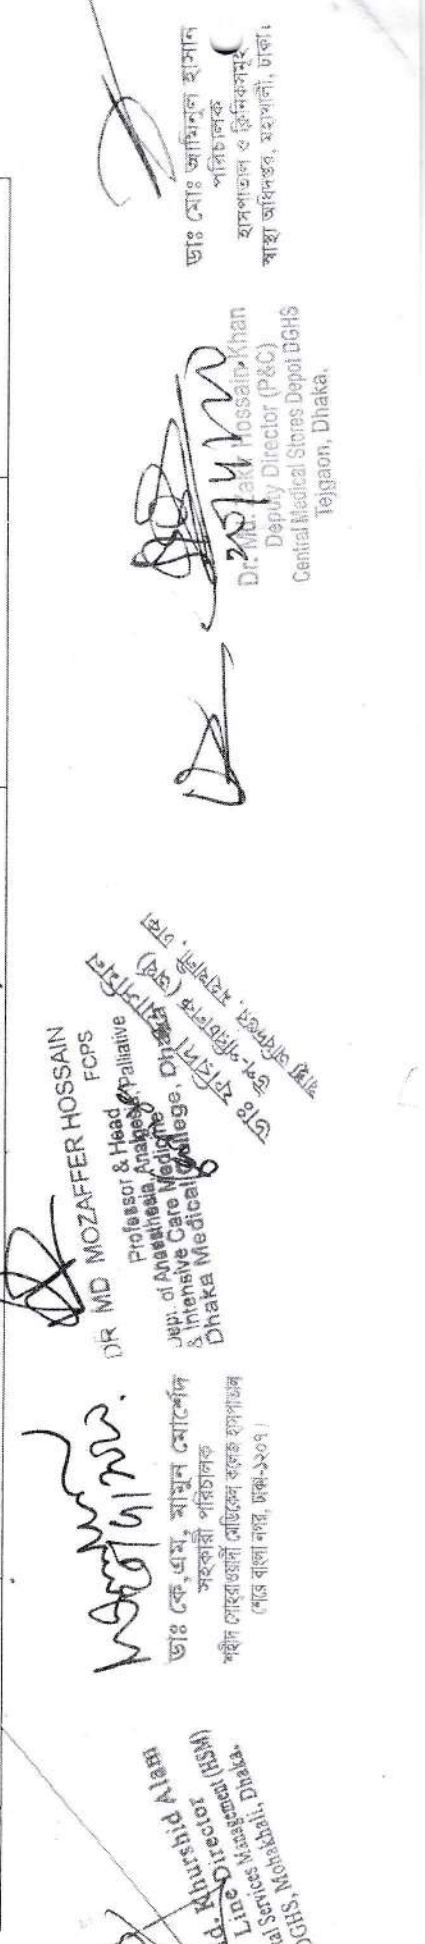 d. Khurshid Alam
Line Director
al Services Management (HSM)
DGHS, Mohakhali, Dhaka.
ডাঃ কে,এম, মামুন মোর্শেদ
সহকারী পরিচালক
শহীদ সোহরাওয়ার্দী মেডিকেল কলেজ হাসপাতাল
শেরে বাংলা নগর, ঢাকা-১২০৭।
DR MD MOZAFFER HOSSAIN
FCPS
Professor & Head
Dept. of Anaesthesia, Analgesia, Palliative
& Intensive Care Medicine
Dhaka Medical College, Dhaka
উপ-পরিচালক (অর্থ)
স্বাস্থ্য অধিদপ্তর, মহাখালী, ঢাকা
Dr. Md. Hossain Khan
Deputy Director (P&C)
Central Medical Stores Depot DGHS
Tejgaon, Dhaka.
ডাঃ মোঃ আমিনুল হাসান
পরিচালক
হাসপাতাল ও ক্লিনিকসমূহ
স্বাস্থ্য অধিদপ্তর, মহাখালী, ঢাকা।